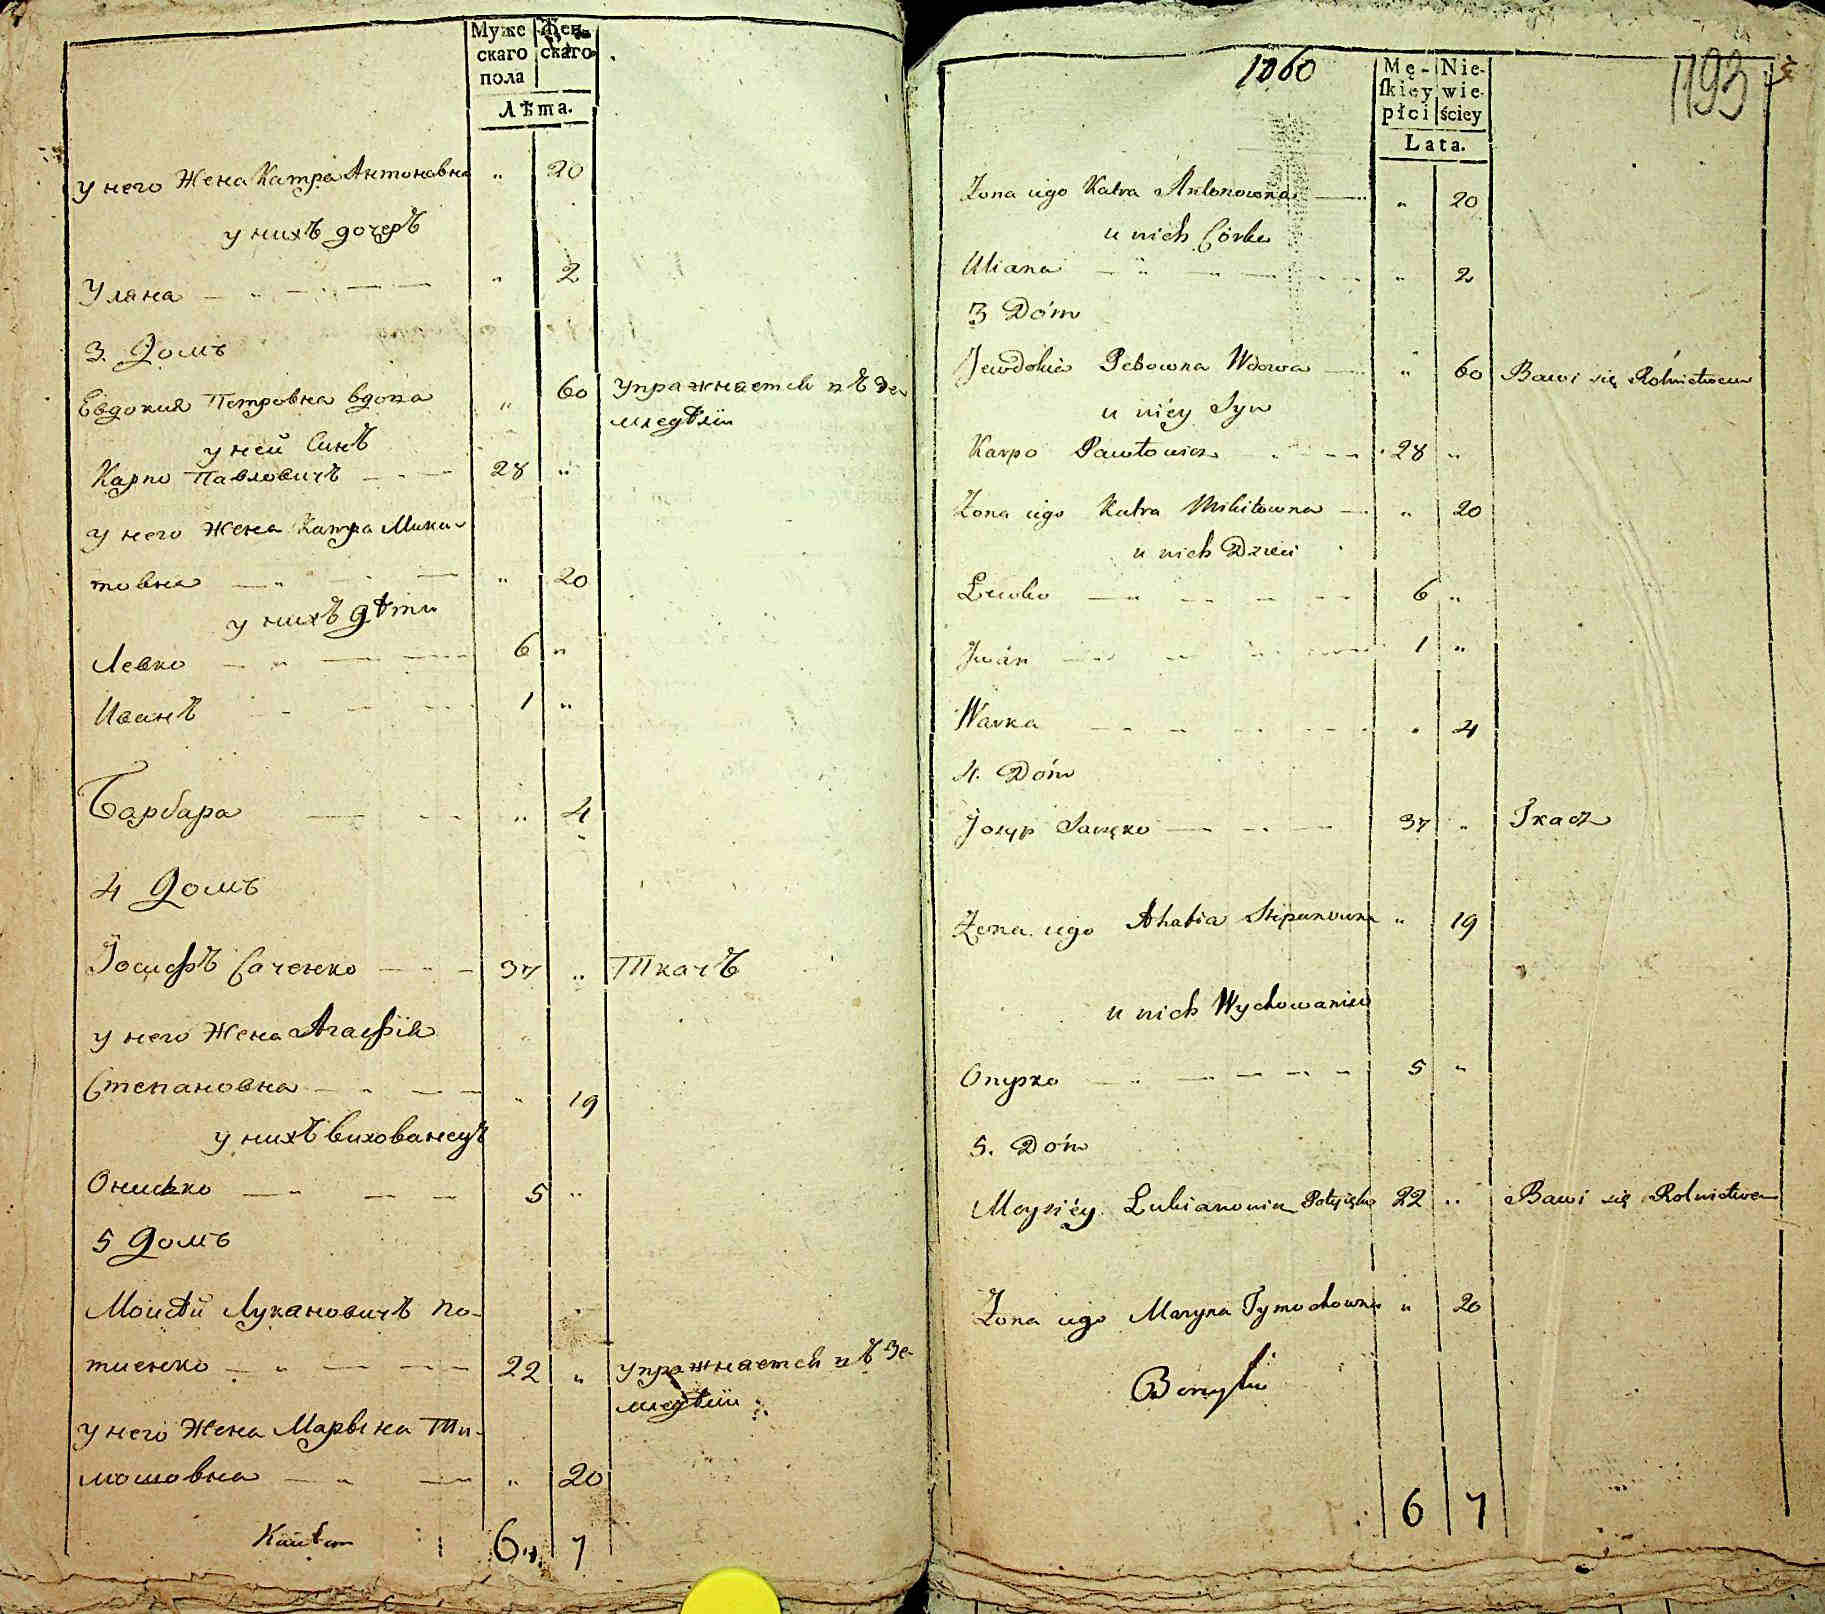 Муже Жен-
скаго скаго
пола
Лѣта.
у него Жена Катра Антоновна „ 20
у нихъ дочеръ
Уляна „ 2
3. Домъ
Евдокия Петровна вдова „ 60 упражнается въ зе
мледѣлїи
у ней Синъ
Карпо Павловичъ 28 „
у него Жена Катра Мики-
товна „ 20
у нихъ дѣти
Левко 6 „
Иванъ 1 „
Барбара „ 4
4 Домъ
Їосифъ Саченко 37 „ Ткачъ
у него Жена Агафїя
Степановна „ 19
у нихъ виховансцъ
Онисько 5 „
5 Домъ
Моисѣй Лукановичъ По-
тиенко 22 „ упражнается въ Зе-
мледѣлїи
у него Жена Марына Ти-
мошовна „ 20
6 7
1060
1193
Mę- Nie-
ſkiey wie-
płci ściey
Lata.
Żona iego Katra Antonowna „ 20
u nich Córka
Uliana „ 2
3 Dóm
Jewdokia Petrowna Wdowa „ 60 Bawi się Rolnictwem
u niéy Syn
Karpo Pawłowicz 28 „
Żona iego Katra Mikitowna „ 20
u nich Dzieci
Lewko 6 „
Jwán 1 „
Warka „ 4
4. Dóm
Josyp Saczęko 37 „ Tkacz
Żona iego Ahafia Stepanowna „ 19
u nich Wychowaniec
Onysko 5 „
5. Dóm
Moysiéy Lukianowicz 22 „ Bawi się Rolnictwem
Żona iego Maryna Tymochowna „ 20
6 7